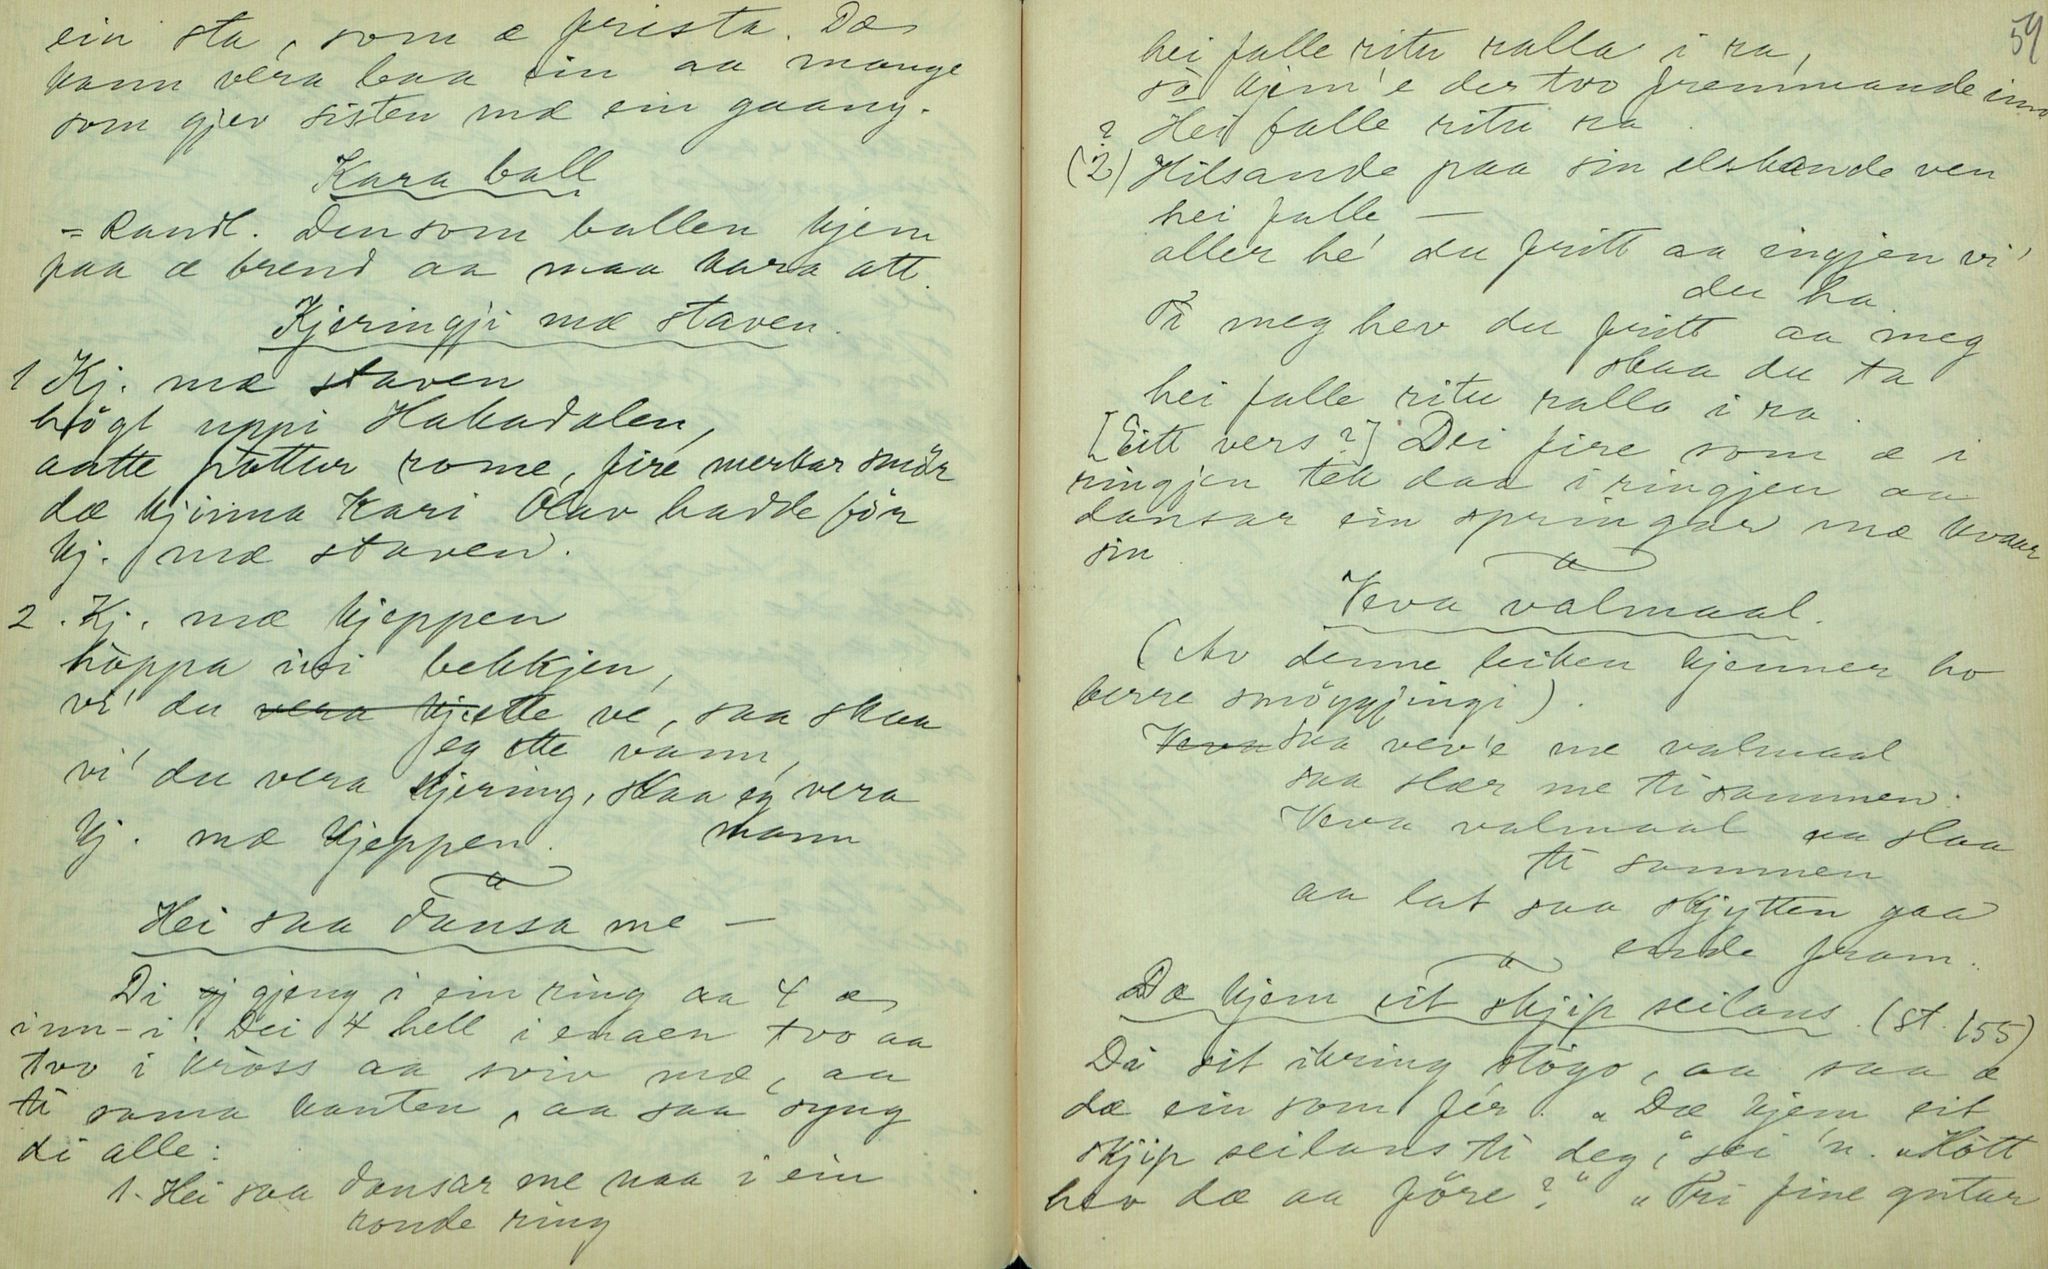 ein sta, som æ frista. Dæ
kann véra baa ein aa mange
som gjev sisten mæ ein gaang.
Kara ball
= Randl. Den som ballen kjem
paa æ brend aa maa kara att.
Kjeringji mæ staven.
1 Kj. mæ staven
högt uppi Hakadalen,
aatte pottur rome, fire merkar smör
dæ kjinna Kari Olav hadde för
kj. mæ staven.
2. Kj. mæ kjeppen
hoppa ivi bekkjen,
vi' du vera kj. ette ve, saa skaa
eg ette vann,
vi' du vera kjering, skaa eg vera
mann
kj. mæ kjeppen.
Hei saa dansa me —
Di gj gjeng i ein ring aa 4 æ
inn-i. Dei 4 hell i enaen tvo aa
tvo i kross aa sviv mæ, aa
ti sama kanten, aa saa syng
di alle:
1. Hei saa dansar me naa i ein
ronde ring
59
hei falle ritu ralla i ra,
so kjem'e der tvo fremmande inn
Hei falle ritu ra.
(2) ? Hilsande paa sin elskande ven
hei falle —
aller he' du fritt aa ingjen vi'
du ha
Ti meg hev du fritt aa meg
skaa du ta
hei falle ritu ralla i ra.
[Eitt vers?] Dei fire som æ i
ringjen tek daa i ringjen aa
dansar ein springar mæ kvaar
sin
Veva valmaal.
(Av denne leiken kjenner ho
berre smöygjingi).
Veva Saa vev'e me valmaal
saa slær me ti sammen.
Veva valmaal aa slaa
ti sammen
aa lat saa skjytten gaa
ende fram.
Dæ kjem eit skjip seilans. (st. 155)
Di sit ikring stögo, aa saa æ
dæ ein som fér. "Dæ kjem eit
skjip seilans ti deg," sei 'n. "Hött
hev dæ aa före?" "Tri fine gutar